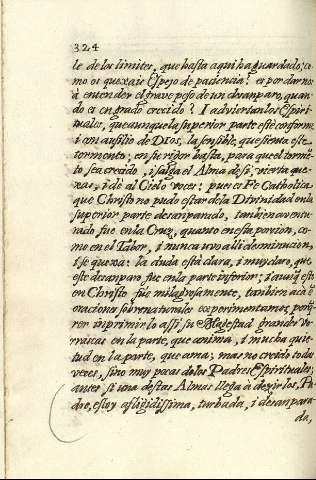 324
le de los limites, que hasta aqui ha guardado; co-
mo os quexais Espejo de paciencia? es por darnos
à entender el grave peso de un desanparo, quan-
do es en grado crecido? I adviertan los Espiri-
tuales, que aunque la superior parte esté conforme
i con ausilio de DIOS, la sensible, que sienta este
tormento; en su rigor basta, para que el tormẽ-
to sea crecido, i salga el Alma de si, vierta que-
xas, i dè al Cielo voces: pues es Fe Catholica
que Christo no pudo estar de la Divinidad en la
superior parte desanparado, tan bienaventu-
rado fue en la Cruz, quanto en esta porcion, co-
mo en el Tabor, i nunca uvo alli deminucion,
i se quexa: la duda está clara, i mui claro, que
este desanparo fue en la parte inferior; i aunq̃ esto
en Christo fue milagrosamente, tanbien acà ẽ
oraciones sobrenaturales experimentamos, porq̃
ren inprimirlo assi su Magestad grandes
en la parte, que anima, i mucha quie-
tud en la parte, que ama; mas no creido todas
veces, sino mui pocas de los Padres Espirituales;
antes si una destas Almas llega à decirlos, Pa-
dre, estoy afligidissima, turbada, i desanpara-
da,